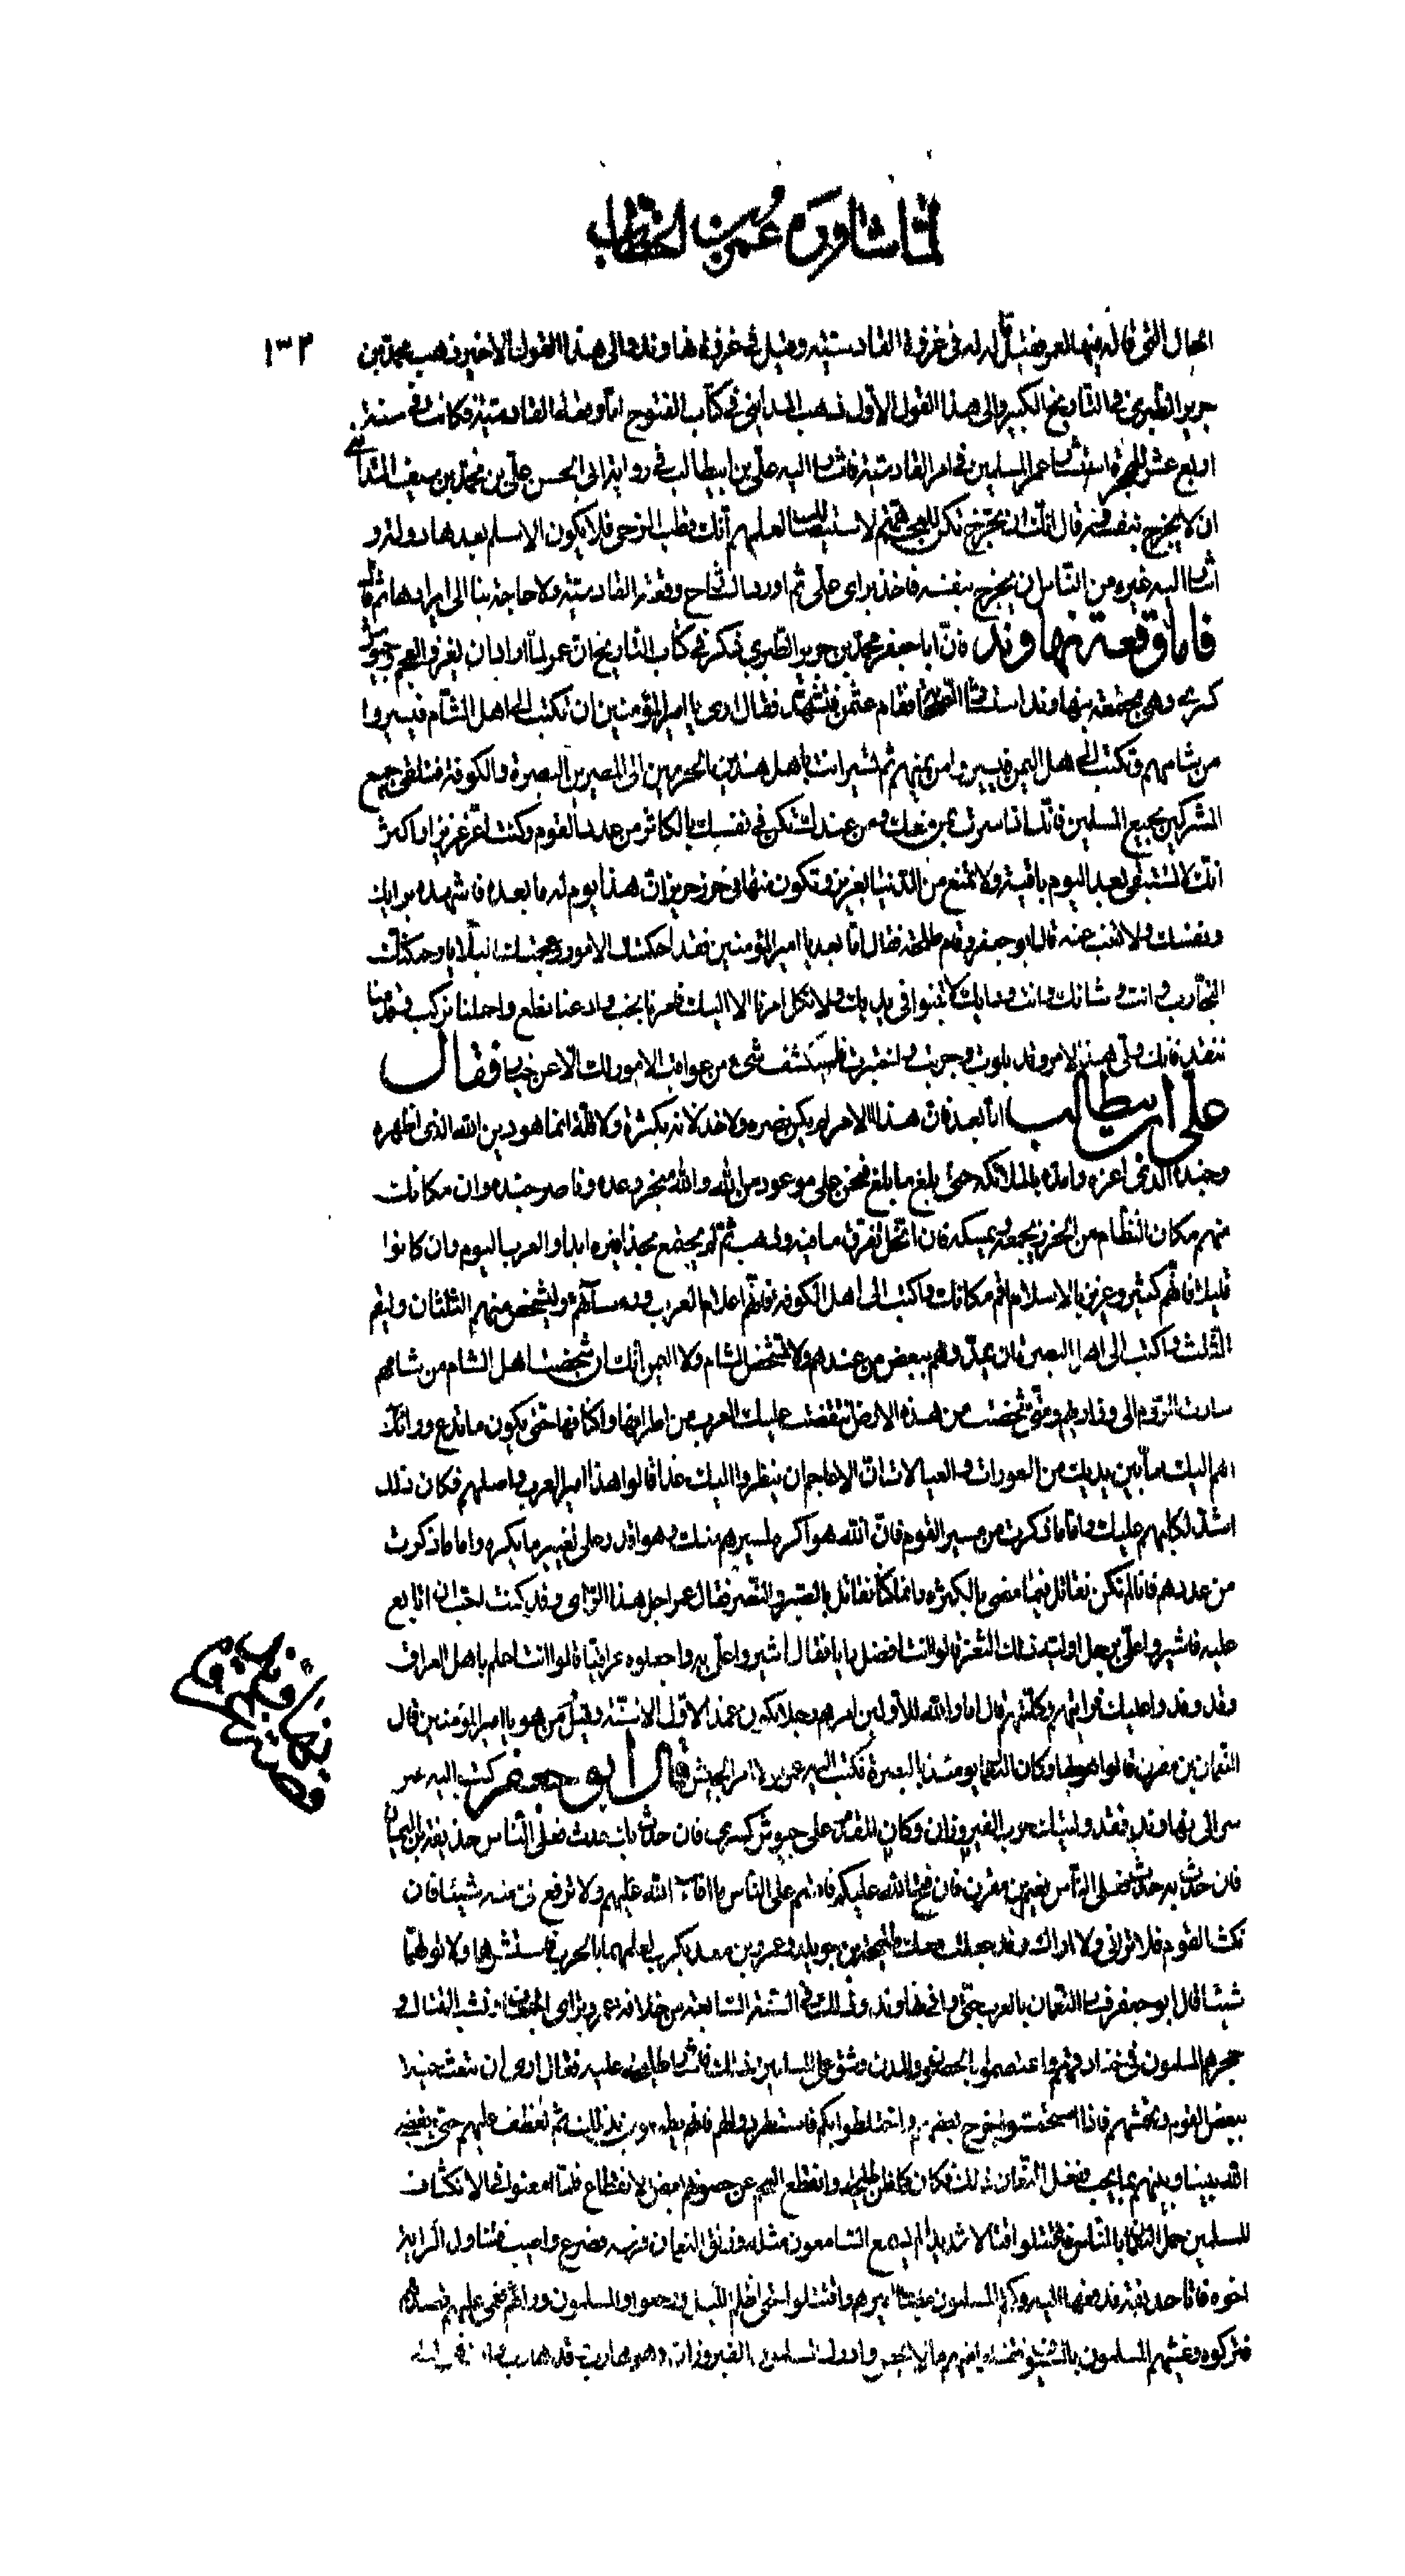 لما شاوره عمر بن الخطاب
١٣٢
الحال التى قاله فيها لعمر فقيل قاله له فى غزوة القادسية وقيل فى غزوة نهاوند والى هذا القول الاخير ذهب محمد بن
جرير الطبرى فى التاريخ الكبير والى هذا القول الاول ذهب المداينى فى كتاب الفتوح اما وقعة القادسية فكانت فى سنة
اربع عشر للهجرة استشار عمر المسلمين فى امر القادسية فاشار اليه على بن ابيطالب فى رواية ابى الحسن على بن محمد بن سيف المداينى
ان لا يخرج بنفسه وقال انك ان تخرج تكن للعجم همة لاستيصالك لعلمهم انك قطب الرحى فلا يكون للاسلام بعدها دولة و
اشار اليه غيره من الناس ان يخرج بنفسه فاخذ براى على ثم اورد الشارح وقعة القادسية ولا حاجة بنا الى ايرادها ثم قال
فاما وقعة نهاوند فان ابا جعفر محمد بن جرير الطبرى ذكر فى كتاب التاريخ ان عمر لما اراد ان يغزو العجم وجيوش
كسرى وهى مجتمعة بنهاوند استشار الصحابة فقام عثمن فتشهد فقال ارى يا امير المؤمنين ان تكتب الى اهل الشام فيسيروا
من شامهم وتكتب الى اهل اليمن فيسيروا من يمنهم ثم تسير انت باهل هذين الحرمين الى المصرين البصرة والكوفة فتلقى جميع
المشركين بجميع المسلمين فانك اذا سرت بمن معك ومن عندك تكن فى نفسك بالكاثر من عدد القوم وكنت اعز عزيزا واكثر
انك لا تستبقى بعد اليوم باقية ولا تمتع من الدنيا بعزيز وتكون منها فى حرز حريز ان هذا يوم له ما بعده فاشهده برايك
ونفسك ولا تغب عنه قال ابو جعفر وقام طلحة فقال اما بعد يا امير المؤمنين فقد احكمتك الامور وعجمتك البلايا وحنكتك
التجارب وانت وشانك وانت ورايك لا ننبوا فى يديك ولا نكل امرنا الا اليك فامرنا نجب وادعنا نطع واحملنا نركب وقدنا
ننقد فانك ولى هذا الامر وقد بلوت وجربت واختبرت فلم ينكشف شىء من عواقب الامور لك الا عن خيار فقال
على ابن ابيطالب اما بعد فان هذا الامر لم يكن نصره ولا خذلانه بكثرة ولا قلة انما هو دين الله الذى اظهره
وجنده الذى اعزه وامده بالملائكة حتى بلغ ما بلغ فنحن على موعود من الله والله منجز وعده وناصر جنده وان مكانك
منهم مكان النظام من الخرز يجمعه ويمسكه فان انحل تفرق ما فيه وذهب ثم لم يجتمع بحذافيره ابدا والعرب اليوم وان كانوا
قليلا فانهم كثير وعزيز بالاسلام اقم مكانك واكتب الى اهل الكوفة فانهم اعلام العرب ورؤساؤهم وليشخص منهم الثلثان وليقم
الثلث واكتب الى اهل البصرة ان يمدوهم ببعض من عندهم ولا تشخص الشام ولا اليمن انك ان اشخصت اهل الشام من شامهم
سارت الروم الى ذراريهم ومتى شخصت من هذه الارض انتقضت عليك العرب من اطرافها واكنافها حتى يكون ما تدع ورائك
اهم اليك مما بين يديك من العورات والعيالات ان الاعاجم ان ينظروا اليك غدا قالوا هذا امير العرب واصلهم فكان ذلك
اشد لكلبهم عليك واما ما ذكرت من مسير القوم فان الله هو اكره لمسيرهم منك وهو اقدر على تغيير ما يكره واما ما ذكرت
من عددهم فانا لم نكن نقاتل فيما مضى بالكثرة وانما كنا نقاتل بالصبر والنصر فقال عمر اجل هذا الراى وقد كنت احب ان اتابع
عليه فاشيروا على برجل اوليه ذلك الثغر قالوا انت افضل رايا فقال اشيروا على به واجعلوه عراقيا قالوا انت اعلم باهل العراق
وقد وفدوا عليك فرايتهم وكلمتهم قال اما والله لاولين امرهم رجلا يكون عمدا لاول الاسنة وقيل من هو يا امير المؤمنين قال
النعمان بن مقرن قالوا هو لها وكان النعمان يومئذ بالبصرة فكتب اليه عمر فولاه امر الجيش قال ابو جعفر كتب اليه عمر
سر الى نهاوند فقد وليتك حرب الفيروزان وكان المقدم على جيوش كسرى فان حدث بك حدث فعلى الناس حذيفة بن اليمان
فان حدث به حدث فعلى الناس نعيم بن مقرن فان فتح الله عليكم فاقسم على الناس ما افاء الله عليهم ولا ترفع الى منه شيئا فان
نكث القوم فلا ترانى ولا اراك وقد جعلت معك طليحة بن خويلد وعمرو بن معد يكرب لعلمهما بالحرب فاستشرهما ولا تولهما
شيئا قال ابو جعفر فسار النعمان بالعرب حتى وافى نهاوند وذلك فى السنة السابعة من خلافة عمر وتراى الجمعان ونشب القتال و
حجزهم المسلمون فى خنادقهم واعتصموا بالحصون والمدن وشق على المسلمين ذلك فاشار طليحة عليه فقال ارى ان تبعث خيلا
ببعض القوم وتحمشهم فاذا استحمشوا خرج بعضهم واختلطوا بكم فاستطردوا لهم فانهم يطمعون بذلك ثم نعطف عليهم حتى يقضى
الله بيننا وبينهم بما يحب ففعل النعمان ذلك فكان كما ظن طليحة وانقطع العجم عن حصونهم بعض الانقطاع فلما امعنوا فى الانكشاف
للمسلمين حمل النعمان بالناس فاقتتلوا قتالا شديدا لم يسمع السامعون مثله وزلق النعمان فرسه فصرع واصيب فتناول الراية
اخوه فاتى حذيفة فدفعها اليه وكتم المسلمون مصاب اميرهم واقتتلوا حتى اظلم الليل ورجعوا والمسلمون ورائهم فعمى عليهم قصدهم
فتركوه وغشيهم المسلمون بالسيوف فقتلوا منهم ما لا يحصى وادرك المسلمون الفيروزان وهو هارب
قصة نهاوند